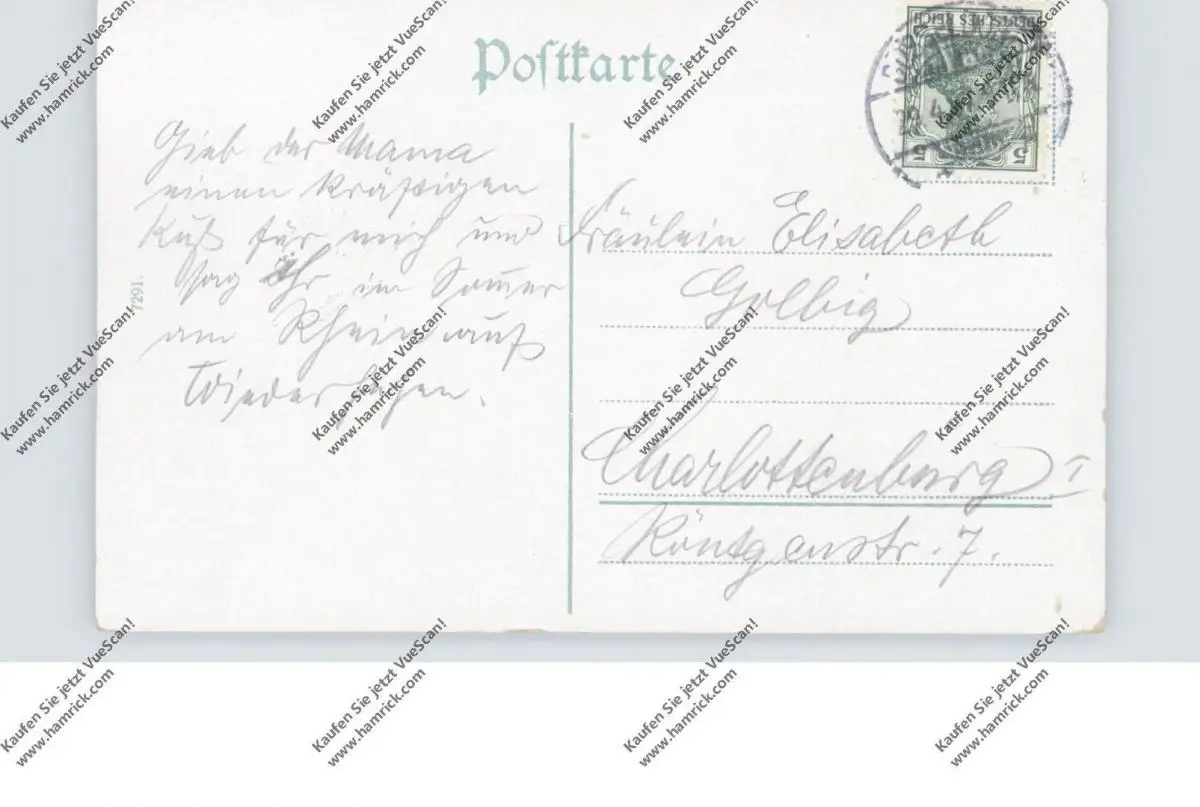 Postkarte
DEUTSCHES REICH
5 5
Gieb der Mama
einen kräftigen
Kuß für mich und
sag Ihr im Som̅er
am Rhein auf
Wiedersehen.
7291.
Fräulein Elisabeth
Golbig
Charlottenburg I
Röntgenstr. 7.
Kaufen Sie jetzt VueScan!
www.hamrick.com
Kaufen Sie jetzt VueScan!
www.hamrick.com
Kaufen Sie jetzt VueScan!
www.hamrick.com
Kaufen Sie jetzt VueScan!
www.hamrick.com
Kaufen Sie jetzt VueScan!
www.hamrick.com
Kaufen Sie jetzt VueScan!
www.hamrick.com
Kaufen Sie jetzt VueScan!
www.hamrick.com
Kaufen Sie jetzt VueScan!
www.hamrick.com
Kaufen Sie jetzt VueScan!
www.hamrick.com
Kaufen Sie jetzt VueScan!
www.hamrick.com
Kaufen Sie jetzt VueScan!
www.hamrick.com
Kaufen Sie jetzt VueScan!
www.hamrick.com